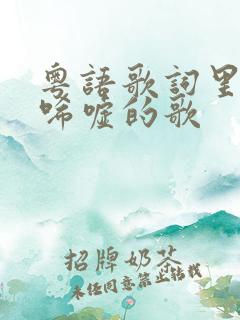 粵語歌詞里
唏噓的歌
招牌奶茶
未经同意禁止转载